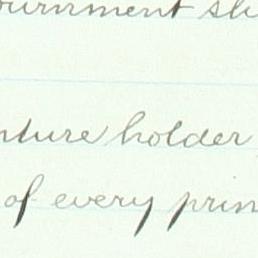 ournment sh
nture holder
of every prin